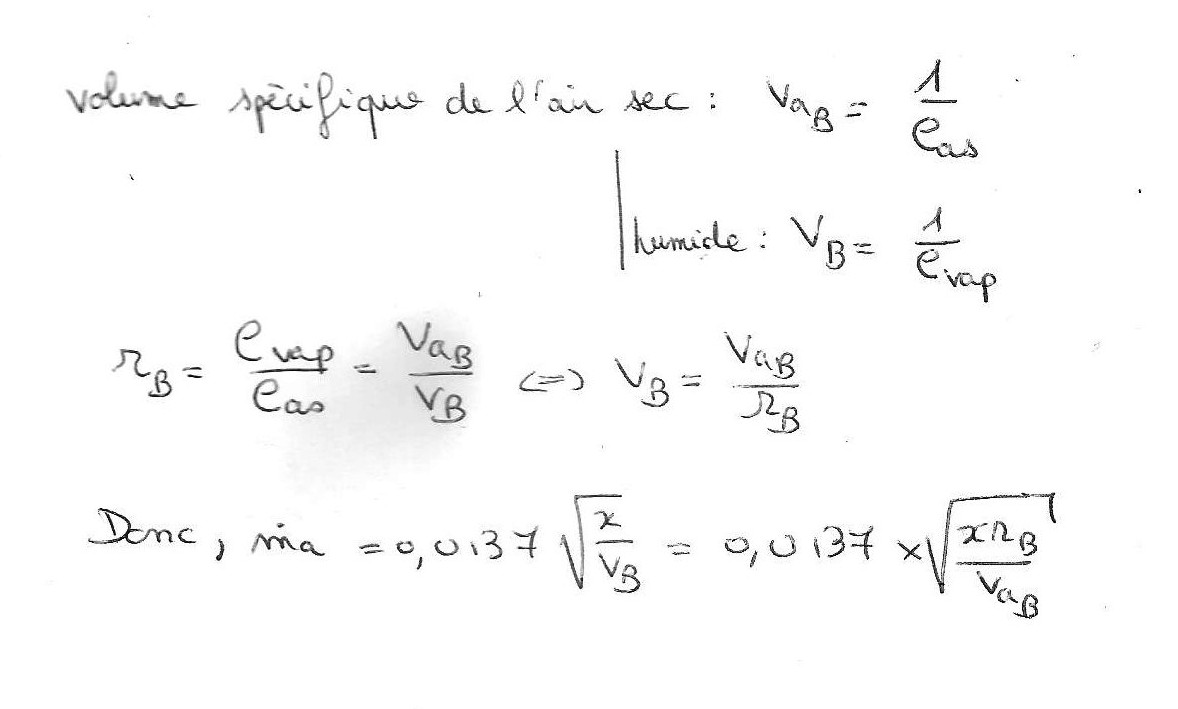 volume spécifique de l'air sec : VaB = 1/ρas
humide : VB = 1/ρvap
rB = ρvap/ρas = VaB/VB <=> VB = VaB/rB
Donc, ṁa = 0,0137 √(x/VB) = 0,0137 × √(x rB/VaB)